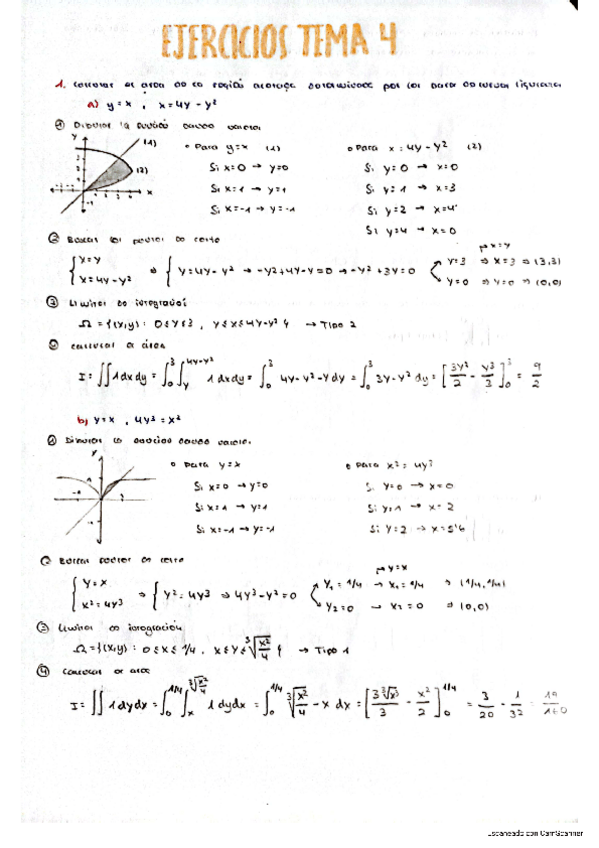 EJERCICIOS TEMA 4
1. Calcular el área de la región acotada determinada por los pares de curvas siguientes
a) y=x , x=4y-y²
① Dibujar la función dando valores
Y (1) • Para y=x (1) • Para x=4y-y² (2)
(2) Si x=0 → y=0 Si y=0 → x=0
Si x=1 → y=1 Si y=1 → x=3
X Si x=-1 → y=-1 Si y=2 → x=4
Si y=4 → x=0
② Buscar los puntos de corte
{ x=y x=4y-y² ⇒ { y=4y-y² → -y²+4y-y=0 → -y²+3y=0 y=3 ⇒ x=3 ⇒ (3,3) → x=y
y=0 ⇒ x=0 ⇒ (0,0)
③ Límites de integración
Ω={(x,y): 0≤y≤3, y≤x≤4y-y²} → Tipo 2
④ Calcular el área
I=∬1dxdy=∫₀³∫_y^{4y-y²} 1dxdy=∫₀³ 4y-y²-y dy=∫₀³ 3y-y² dy=[3y²/2 - y³/3]₀³=9/2
b) y=x , 4y³=x²
① Dibujar la función dando valores
Y • Para y=x • Para x²=4y³
Si x=0 → y=0 Si y=0 → x=0
Si x=1 → y=1 Si y=1 → x=2
Si x=-1 → y=-1 Si y=2 → x=5'6
② Buscar puntos de corte
→ y=x
{ y=x x²=4y³ ⇒ { y²=4y³ ⇒ 4y³-y²=0 y₁=1/4 → x₁=1/4 → (1/4,1/4)
y₂=0 → x₂=0 ⇒ (0,0)
③ Límites de integración
Ω={(x,y): 0≤x≤1/4, x≤y≤∛(x²/4)} → Tipo 1
④ Calcular el área
I=∬1dydx=∫₀^{1/4}∫_x^{∛(x²/4)} 1dydx=∫₀^{1/4} ∛(x²/4) - x dx= = 3/20 - 1/32 =
Escaneado con CamScanner